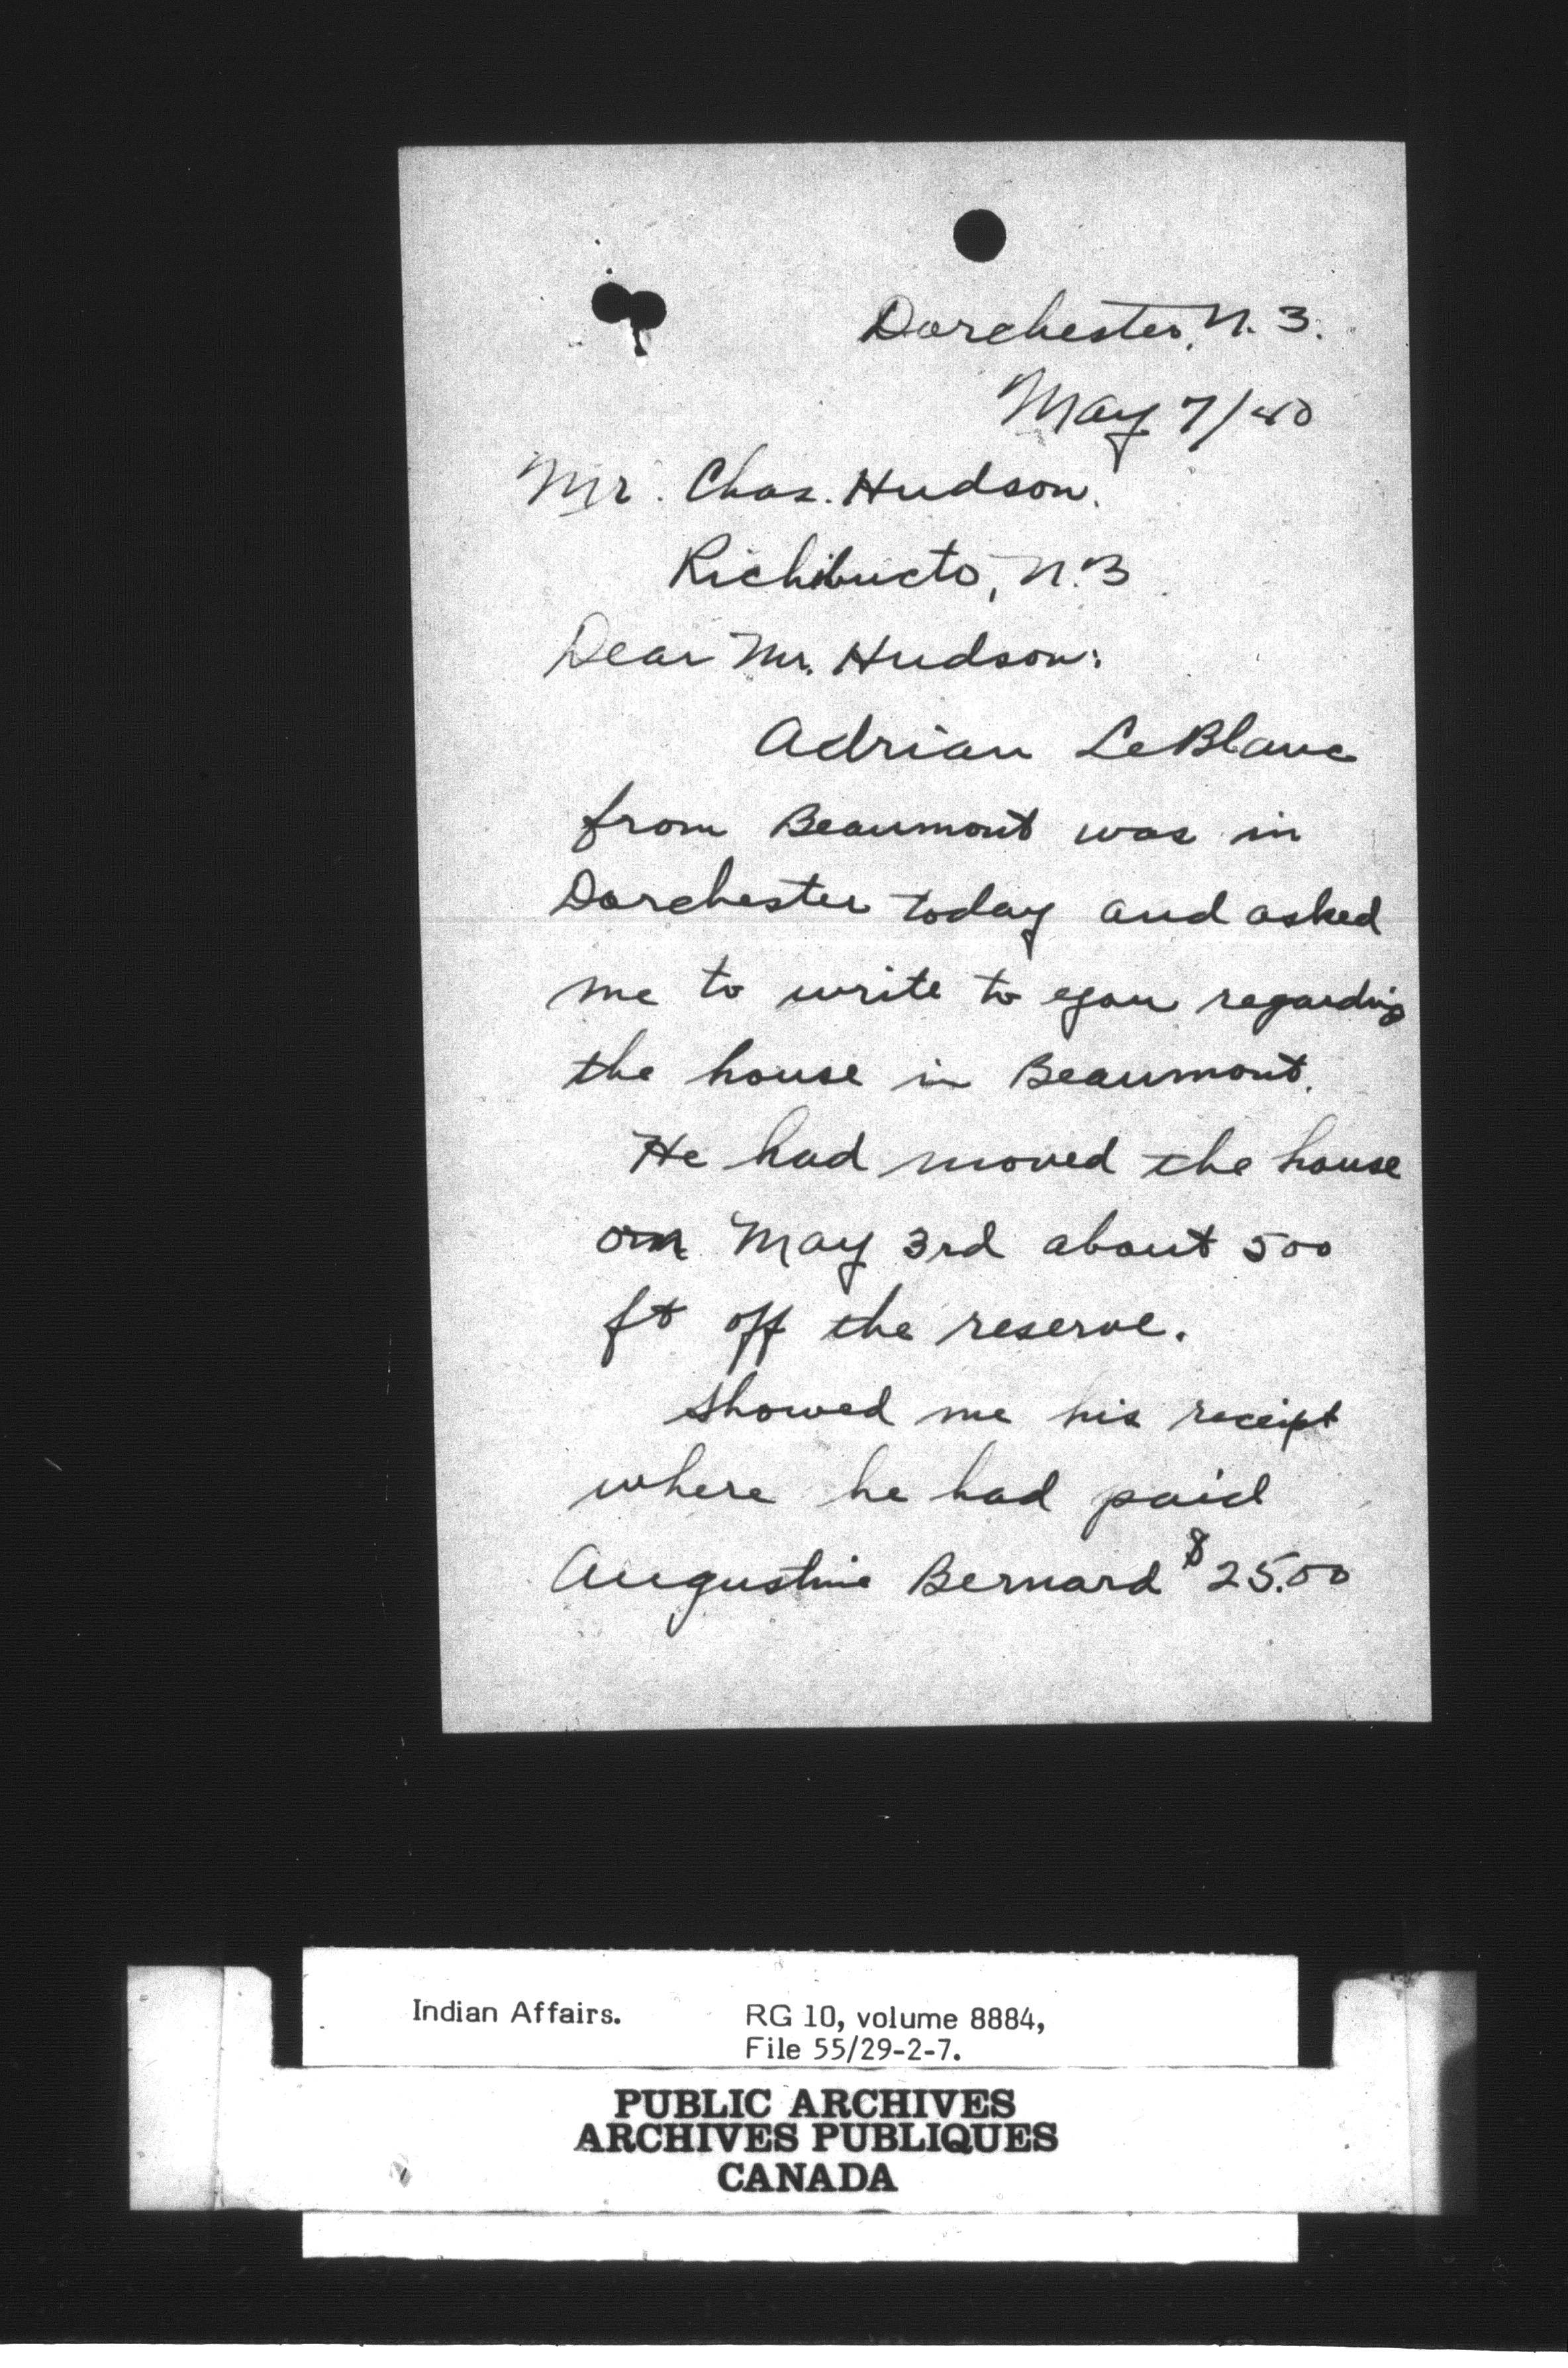 Dorchester, N.B.
May 7/40
Mr. Chas. Hudson.
Richibucto, N.B
Dear Mr. Hudson:
Adrian LeBlanc
from Beaumont was in
Dorchester today and asked
me to write to you regarding
the house in Beaumont.
He had moved the house
on May 3rd about 500
ft off the reserve.
Showed me his receipt
where he had paid
Augustine Bernard $25.00
Indian Affairs. RG 10, volume 8884,
File 55/29-2-7.
PUBLIC ARCHIVES
ARCHIVES PUBLIQUES
CANADA